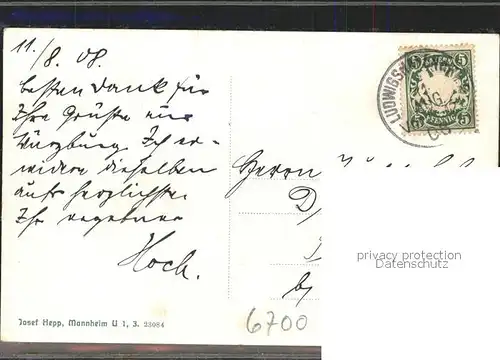 11./8. 08.
besten Dank für
Ihre Grüße aus
Würzburg. Ich er-
widere dieselben
aufs herzlichste
Ihr ergebener
Hoch.
Josef Hepp, Mannheim U 1, 3. 23084
5 5
PFENNIG
5 5
LUDWIGS
Herrn
6700
privacy protection
Datenschutz